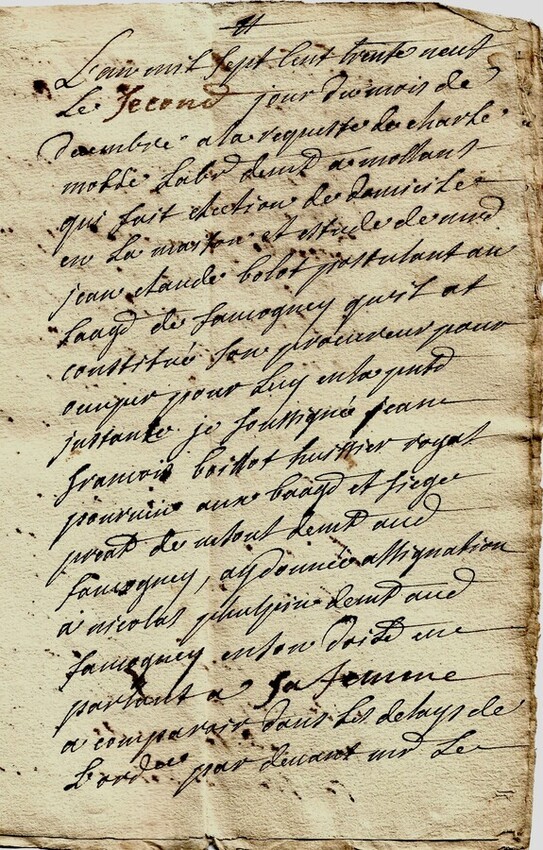 L'an mil sept cent trente neuf
Le second jour du mois de
decembre a la requeste de charle
mobde Labr demt a mollans
qui fait election de domicile
en la maison et estude de me
jean claude bolot postulant au
baage de faucogney qu'il at
constitué son procureur pour
occuper pour luy en la pnte
instante je soussigné jean
francois boillot huissier royal
pourvu aux baage et siege
pnal de vesoul demt aud
faucogney, ay donnée assignation
a nicolas phulpin demt aud
faucogney en son domle en
parlant a sa femme
a comparoir dans les delays de
L'ordce par devant mr Le